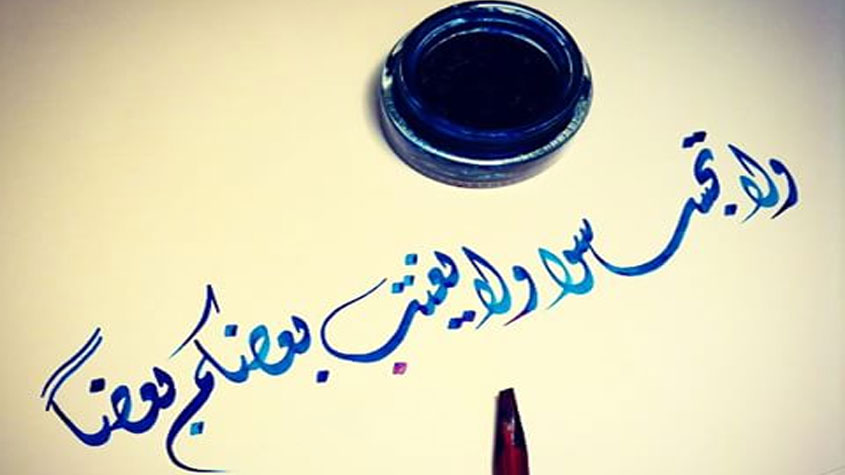 ولا تجسسوا ولا يغتب بعضكم بعضاً